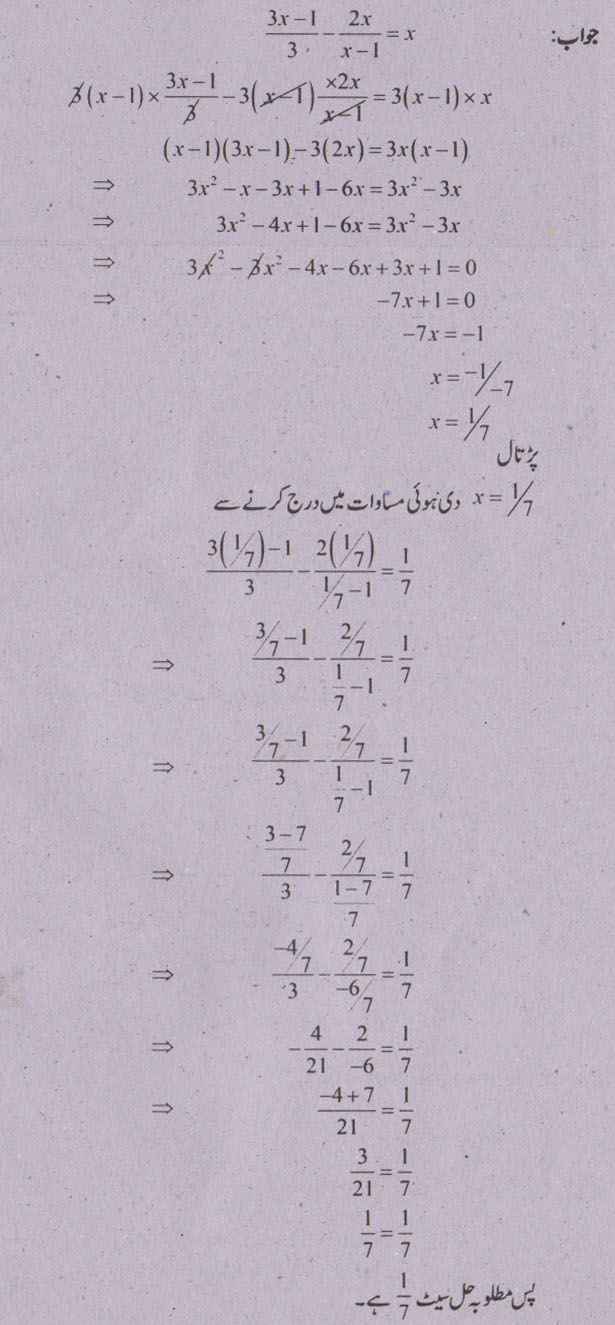 جواب: (3x-1)/3 - 2x/(x-1) = x
3(x-1) × (3x-1)/3 - 3(x-1) ×2x/(x-1) = 3(x-1) × x
(x-1)(3x-1)-3(2x) = 3x(x-1)
⇒ 3x² - x - 3x + 1 - 6x = 3x² - 3x
⇒ 3x² - 4x + 1 - 6x = 3x² - 3x
⇒ 3x² - 3x² - 4x - 6x + 3x + 1 = 0
⇒ -7x + 1 = 0
-7x = -1
x = -1/-7
x = 1/7
پڑتال
x = 1/7 دی ہوئی مساوات میں درج کرنے سے
(3(1/7)-1)/3 - 2(1/7)/(1/7 - 1) = 1/7
⇒ (3/7 - 1)/3 - (2/7)/(1/7 - 1) = 1/7
⇒ (3/7 - 1)/3 - (2/7)/(1/7 - 1) = 1/7
⇒ ((3-7)/7)/3 - (2/7)/((1-7)/7) = 1/7
⇒ (-4/7)/3 - (2/7)/(-6/7) = 1/7
⇒ -4/21 - 2/-6 = 1/7
⇒ (-4+7)/21 = 1/7
3/21 = 1/7
1/7 = 1/7
پس مطلوبہ حل سیٹ 1/7 ہے۔